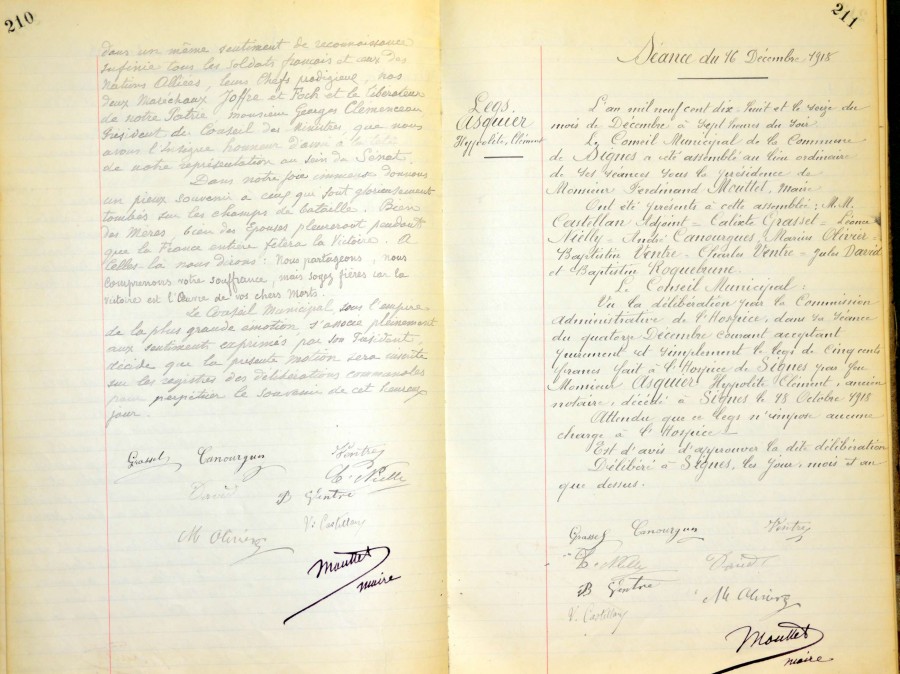 210
dans un même sentiment de reconnaissance
infinie tous les soldats français et ceux des
Nations Alliées, leurs Chefs prodigieux, nos
deux Maréchaux Joffre et Foch et le libérateur
de notre Patrie, monsieur Georges Clemenceau
Président du Conseil des Ministres, que nous
avons l'insigne honneur d'avoir à la tête
de notre représentation au sein du Sénat.
Dans notre joie immense donnons
un pieux souvenir à ceux qui sont glorieusement
tombés sur les champs de bataille. Bien
des Mères, bien des Epouses pleureront pendant
que la France entière fêtera la Victoire. A
celles-là nous dirons: Nous partageons, nous
comprenons votre souffrance, mais soyez fières car la
Victoire est l'Œuvre de vos chers Morts.
Le Conseil Municipal, sous l'empire
de la plus grande émotion s'associe pleinement
aux sentiments exprimés par son Président,
décide que la présente motion sera inscrite
sur les registres des délibérations communales
pour perpétuer le souvenir de cet heureux
jour.
Grasset Canourgues Ventre
David C. Nielly
B Ventre
V. Castellan
M Olivier
Mouttet
maire
211
Séance du 16 Décembre 1918
Legs
Asquier
Hyppolite, Clément
L'an mil neuf cent dix huit et le seize du
mois de Décembre à sept heures du soir
Le Conseil Municipal de la Commune
de Signes a été assemblé au lieu ordinaire
de ses séances sous la présidence de
Monsieur Ferdinand Mouttet, Maire
Ont été présents à cette assemblée: M.M.
Castellan Adjoint - Calixte Grasset - Léonce
Nielly - André Canourgues, Marius Olivier -
Baptistin Ventre - Charles Ventre - Jules David
et Baptistin Roquebrune.
Le Conseil Municipal:
Vu la délibération par la Commission
Administrative de l'Hospice, dans sa séance
du quatorze Décembre courant acceptant
purement et simplement le legs de cinq cents
francs fait à l'Hospice de Signes par feu
Monsieur Asquier Hyppolite Clément, ancien
notaire, décédé à Signes le 18 Octobre 1918
Attendu que ce legs n'impose aucune
charge à l'Hospice -
Est d'avis d'approuver la dite délibération
Délibéré à Signes, les jour, mois et an
que dessus.
Grasset Canourgues Ventre
C. Nielly David
B Ventre
M Olivier
V. Castellan
Mouttet
maire